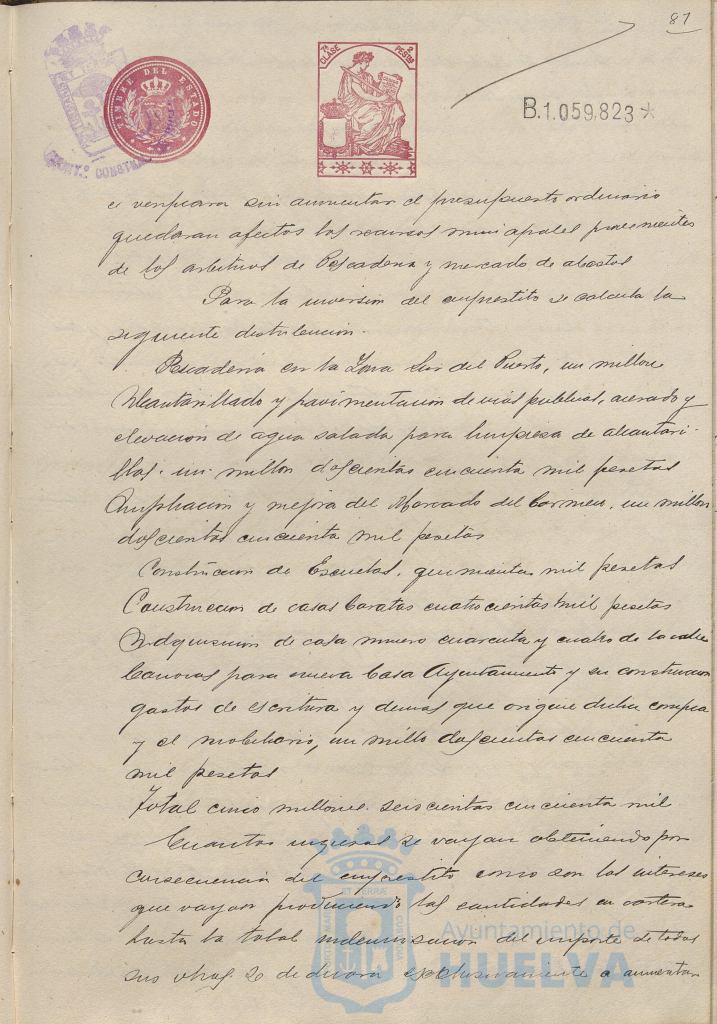 87
TIMBRE DEL ESTADO
7ª CLASE 2 PESETAS
B.1.059.823*
CONSTI
se verificara sin aumentar el presupuesto ordinario
quedaran afectos los recursos municipales provenientes
de los arbitrios de Pescaderia y mercado de abastos
Para la inversion del emprestito se calcula la
siguiente distribucion.
Pescaderia en la Zona Sur del Puerto, un millon
Alcantarillado y pavimentacion de vias publicas, acerado y
elevacion de agua salada para limpiesa de alcantari-
llas. un millon doscientas cincuenta mil pesetas
Ampliacion y mejora del Mercado del Carmen, un millon
doscientas cincuenta mil pesetas
Construccion de Escuelas, quinientas mil pesetas
Construccion de casas baratas cuatrocientas mil pesetas
Adquisicion de casa numero cuarenta y cuatro de la calle
Canovas para nueva Casa Ayuntamiento y su construccion
gastos de escritura y demas que origine dicha compra
y el mobiliario, un millo doscientas cincuenta
mil pesetas
Total cinco millones seiscientas cincuenta mil
Cuantos ingresos se vayan obteniendo por
consecuencia del emprestito como son los intereses
que vayan produciendo las cantidades en cartera
hasta la total indemnisacion del importe de todas
sus obras se dedicara exclusivamente a aumentar
Ayuntamiento de
HUELVA